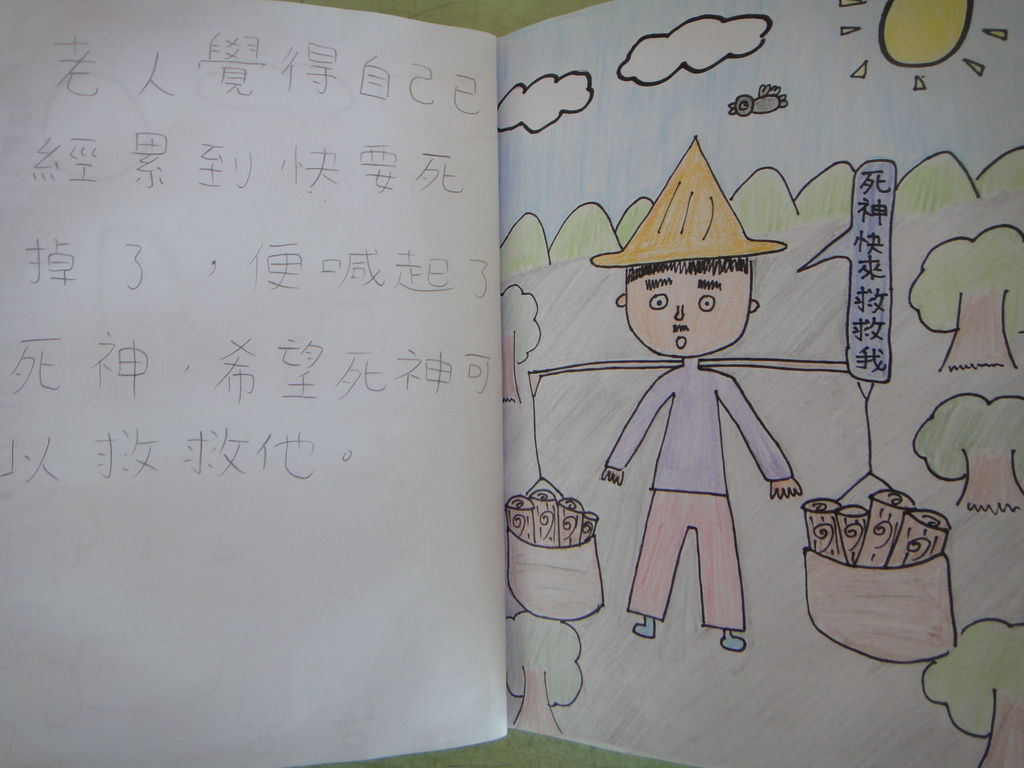 老人覺得自己已
經累到快要死
掉了，便喊起了
死神，希望死神可
以救救他。
死神快來救救我